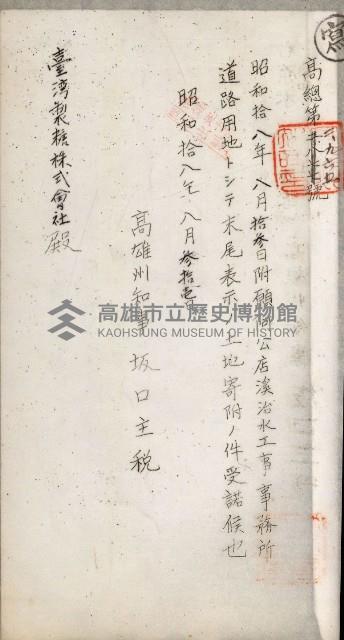 寫
高總第號
昭和拾八年八月拾参日附願阿公店溪治水工事事務所
道路用地トシテ末尾表示ノ土地寄附ノ件受諾候也
昭和拾八年八月参拾壱日
高雄州知事坂口主税
臺湾製糖株式會社殿
高雄市立歷史博物館
KAOHSIUNG MUSEUM OF HISTORY